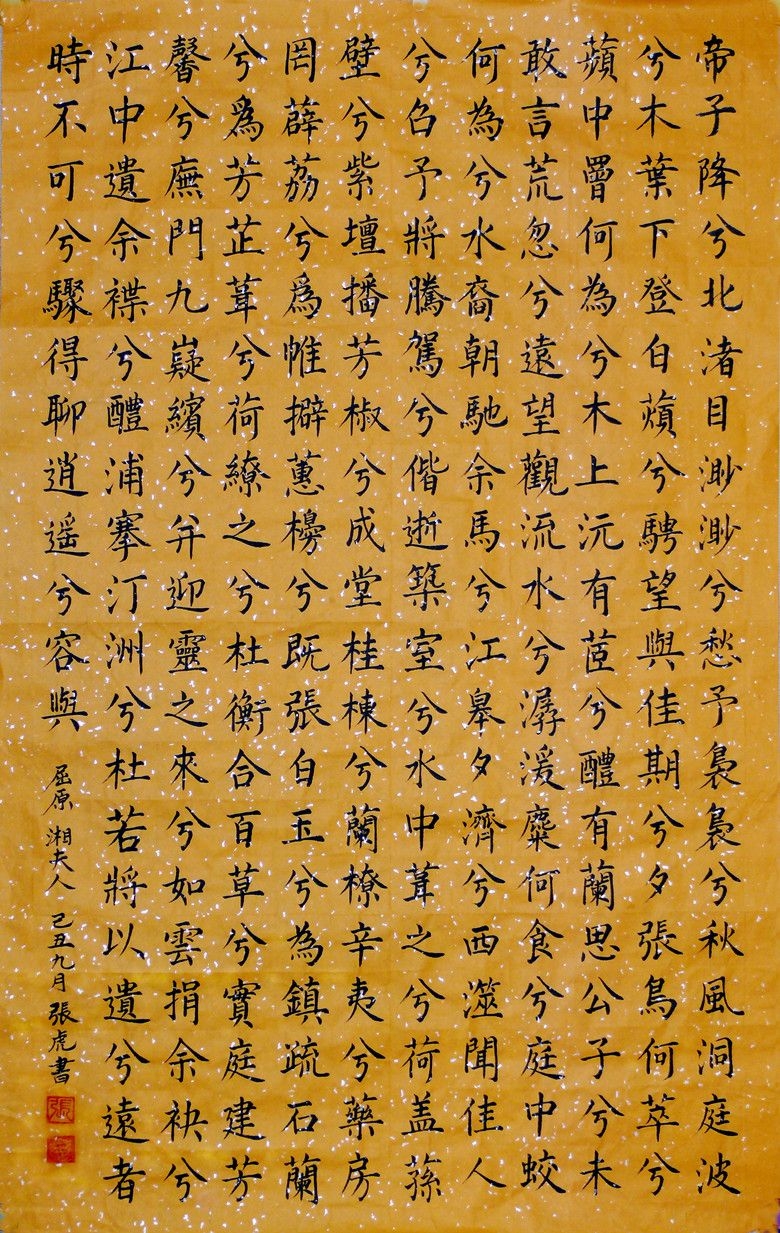 帝子降兮北渚目渺渺兮愁予裊裊兮秋風洞庭波
兮木葉下登白薠兮騁望與佳期兮夕張鳥何萃兮
蘋中罾何為兮木上沅有茝兮醴有蘭思公子兮未
敢言荒忽兮遠望觀流水兮潺湲麋何食兮庭中蛟
何為兮水裔朝馳余馬兮江皋夕濟兮西澨聞佳人
兮召予將騰駕兮偕逝築室兮水中葺之兮荷盖蓀
壁兮紫壇播芳椒兮成堂桂棟兮蘭橑辛夷兮藥房
罔薜荔兮爲帷擗蕙櫋兮既張白玉兮為鎮疏石蘭
兮爲芳芷葺兮荷繚之兮杜衡合百草兮實庭建芳
馨兮廡門九嶷繽兮弁迎靈之來兮如雲捐余袂兮
江中遺余褋兮醴浦搴汀洲兮杜若將以遺兮遠者
時不可兮驟得聊逍遥兮容與
屈原 湘夫人 己丑九月 張虎書